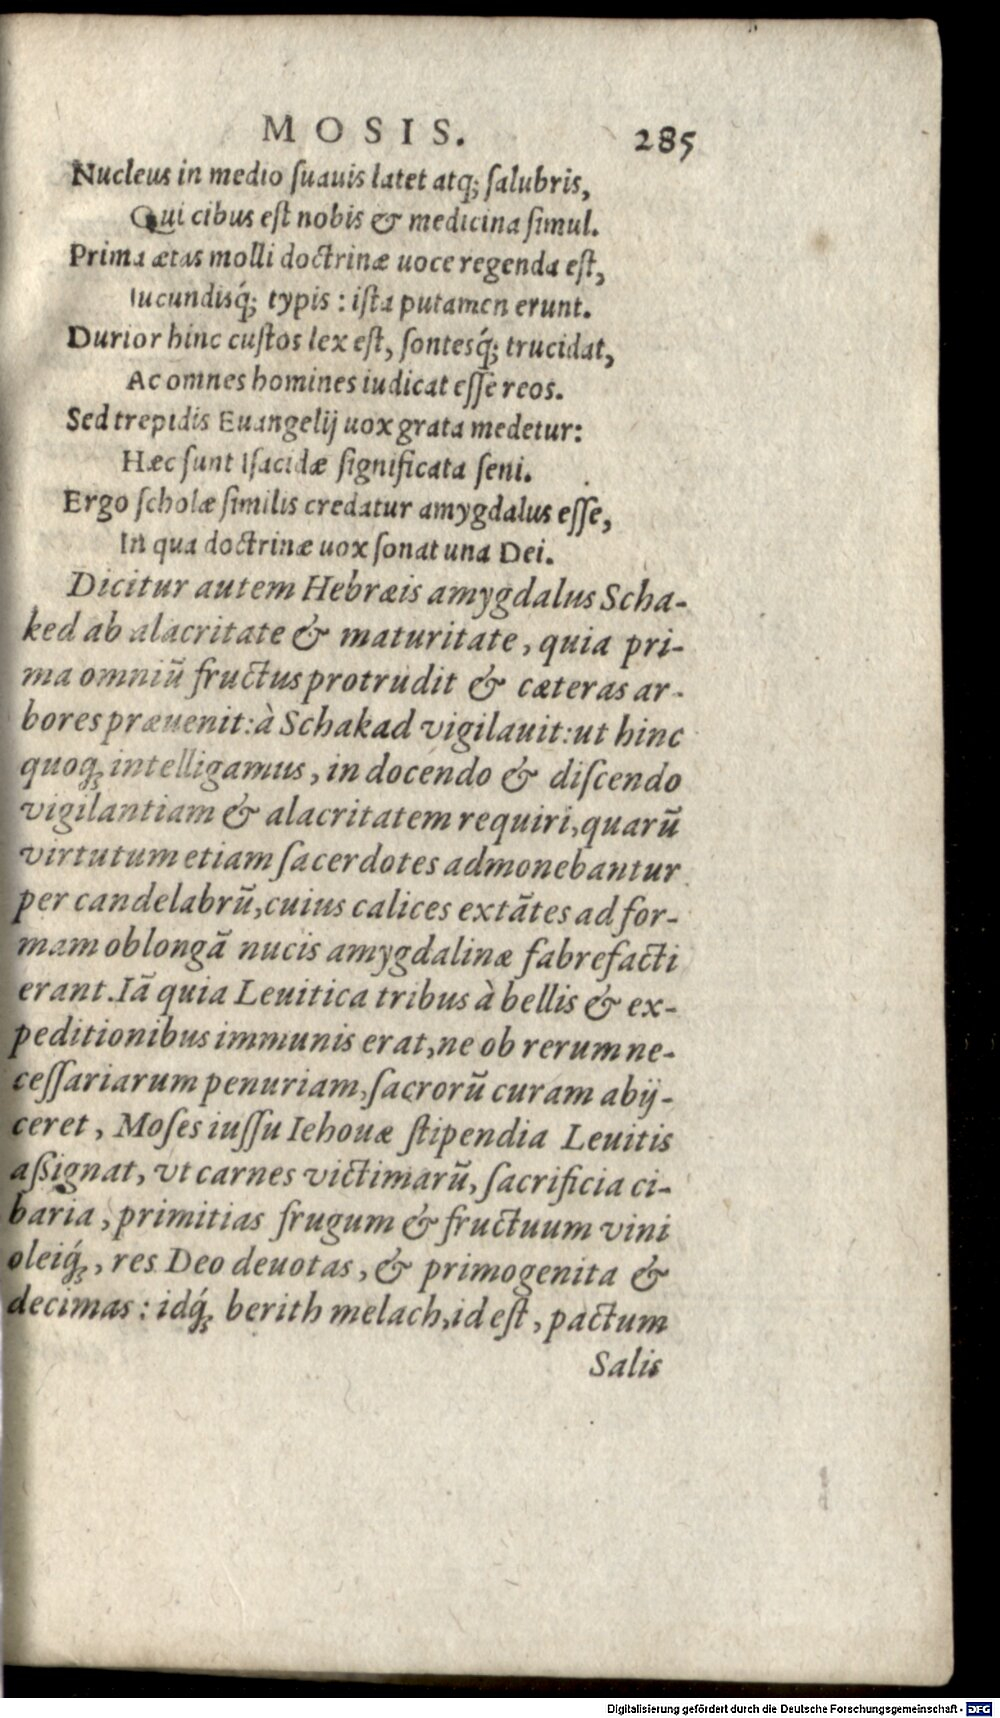 MOSIS. 285
Nucleus in medio ſuauis latet atq́; ſalubris,
Qui cibus eſt nobis & medicina ſimul.
Prima ætas molli doctrinæ uoce regenda eſt,
Iucundisq́; typis : iſta putamen erunt.
Durior hinc cuſtos lex eſt, ſontesq́; trucidat,
Ac omnes homines iudicat eſſe reos.
Sed trepidis Euangelij uox grata medetur:
Hæc ſunt Iſacidæ ſignificata ſeni.
Ergo ſcholæ ſimilis credatur amygdalus eſſe,
In qua doctrinæ uox ſonat una Dei.
Dicitur autem Hebræis amygdalus Scha-
ked ab alacritate & maturitate, quia pri-
ma omniũ fructus protrudit & cæteras ar-
bores præuenit: à Schakad vigilauit: ut hinc
quoq; intelligamus, in docendo & diſcendo
vigilantiam & alacritatem requiri, quarũ
virtutum etiam ſacerdotes admonebantur
per candelabrũ, cuius calices extãtes ad for-
mam oblongã nucis amygdalinæ fabrefacti
erant. Iã quia Leuitica tribus à bellis & ex-
peditionibus immunis erat, ne ob rerum ne-
ceſſariarum penuriam, ſacrorũ curam abij-
ceret, Moſes iuſſu Iehouæ ſtipendia Leuitis
aßignat, vt carnes victimarũ, ſacrificia ci-
baria, primitias frugum & fructuum vini
oleiq́;, res Deo deuotas, & primogenita &
decimas: idq́; berith melach, id eſt, pactum
Salis
Digitalisierung gefördert durch die Deutsche Forschungsgemeinschaft - DFG